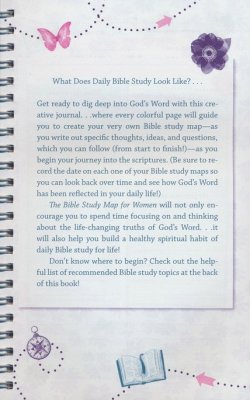 What Does Daily Bible Study Look Like? . . .
Get ready to dig deep into God's Word with this cre-
ative journal. . .where every colorful page will guide
you to create your very own Bible study map—as
you write out specific thoughts, ideas, and questions,
which you can follow (from start to finish!)—as you
begin your journey into the scriptures. (Be sure to re-
cord the date on each one of your Bible study maps so
you can look back over time and see how God's Word
has been reflected in your daily life!)
The Bible Study Map for Women will not only en-
courage you to spend time focusing on and thinking
about the life-changing truths of God's Word. . .it
will also help you build a healthy spiritual habit of
daily Bible study for life!
Don't know where to begin? Check out the help-
ful list of recommended Bible study topics at the back
of this book!